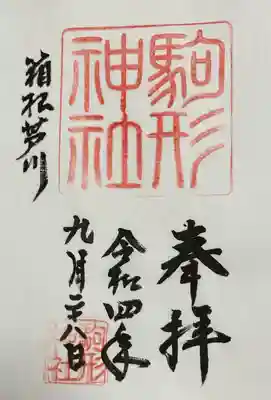 奉拝
駒形
神社
令和四年
九月二十八日
箱根芦川
駒形
神社